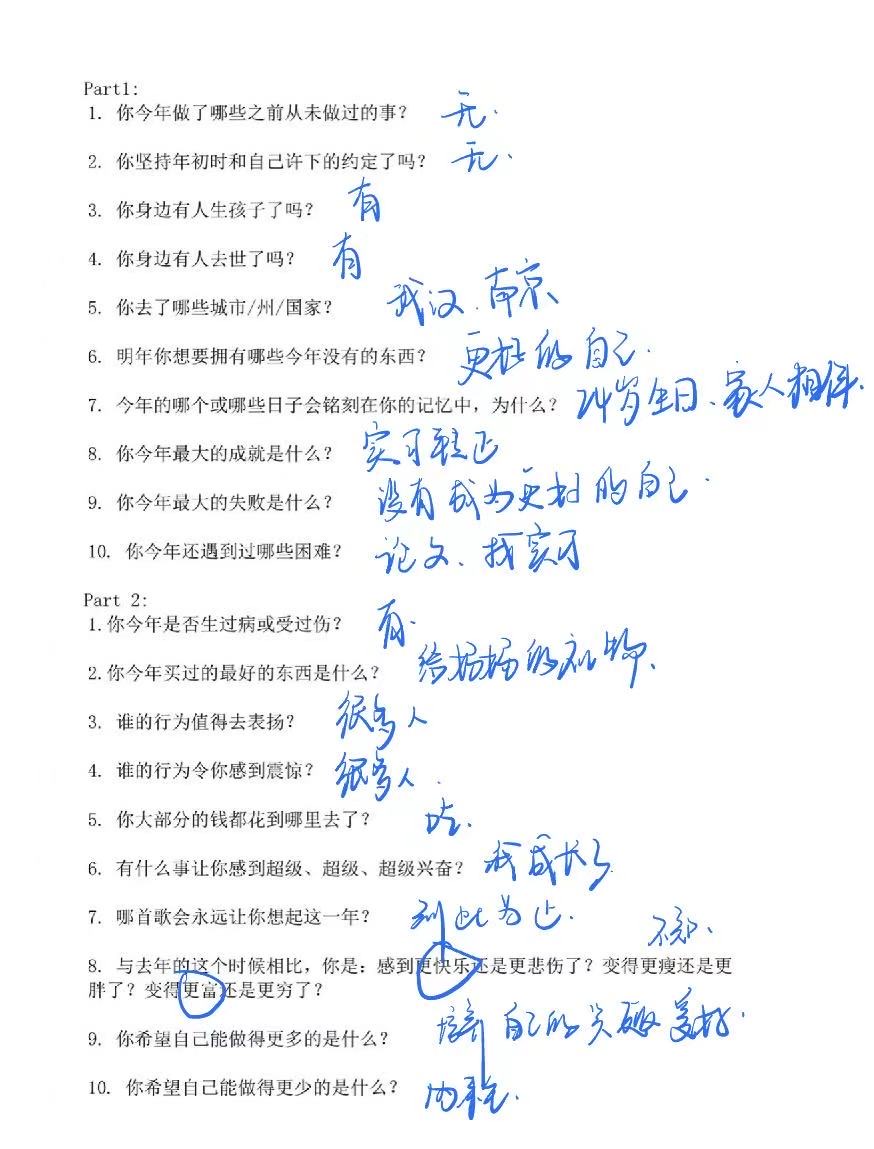 Part1:
1. 你今年做了哪些之前从未做过的事？ 无.
2. 你坚持年初时和自己许下的约定了吗？ 无.
3. 你身边有人生孩子了吗？ 有
4. 你身边有人去世了吗？ 有
5. 你去了哪些城市/州/国家？ 武汉、南京
6. 明年你想要拥有哪些今年没有的东西？ 更好的自己.
7. 今年的哪个或哪些日子会铭刻在你的记忆中，为什么？ 24岁生日、家人相伴.
8. 你今年最大的成就是什么？ 实习转正
9. 你今年最大的失败是什么？ 没有成为更好的自己.
10. 你今年还遇到过哪些困难？ 论文、找实习
Part 2:
1.你今年是否生过病或受过伤？ 有.
2.你今年买过的最好的东西是什么？ 给杨杨的礼物.
3. 谁的行为值得去表扬？ 很多人
4. 谁的行为令你感到震惊？ 很多人.
5. 你大部分的钱都花到哪里去了？ 吃.
6. 有什么事让你感到超级、超级、超级兴奋？ 我成长了
7. 哪首歌会永远让你想起这一年？ 到此为止.
不变.
8. 与去年的这个时候相比，你是：感到更快乐还是更悲伤了？变得更瘦还是更
胖了？变得更富还是更穷了？
9. 你希望自己能做得更多的是什么？ 培养自己的兴趣爱好.
10. 你希望自己能做得更少的是什么？ 内耗.